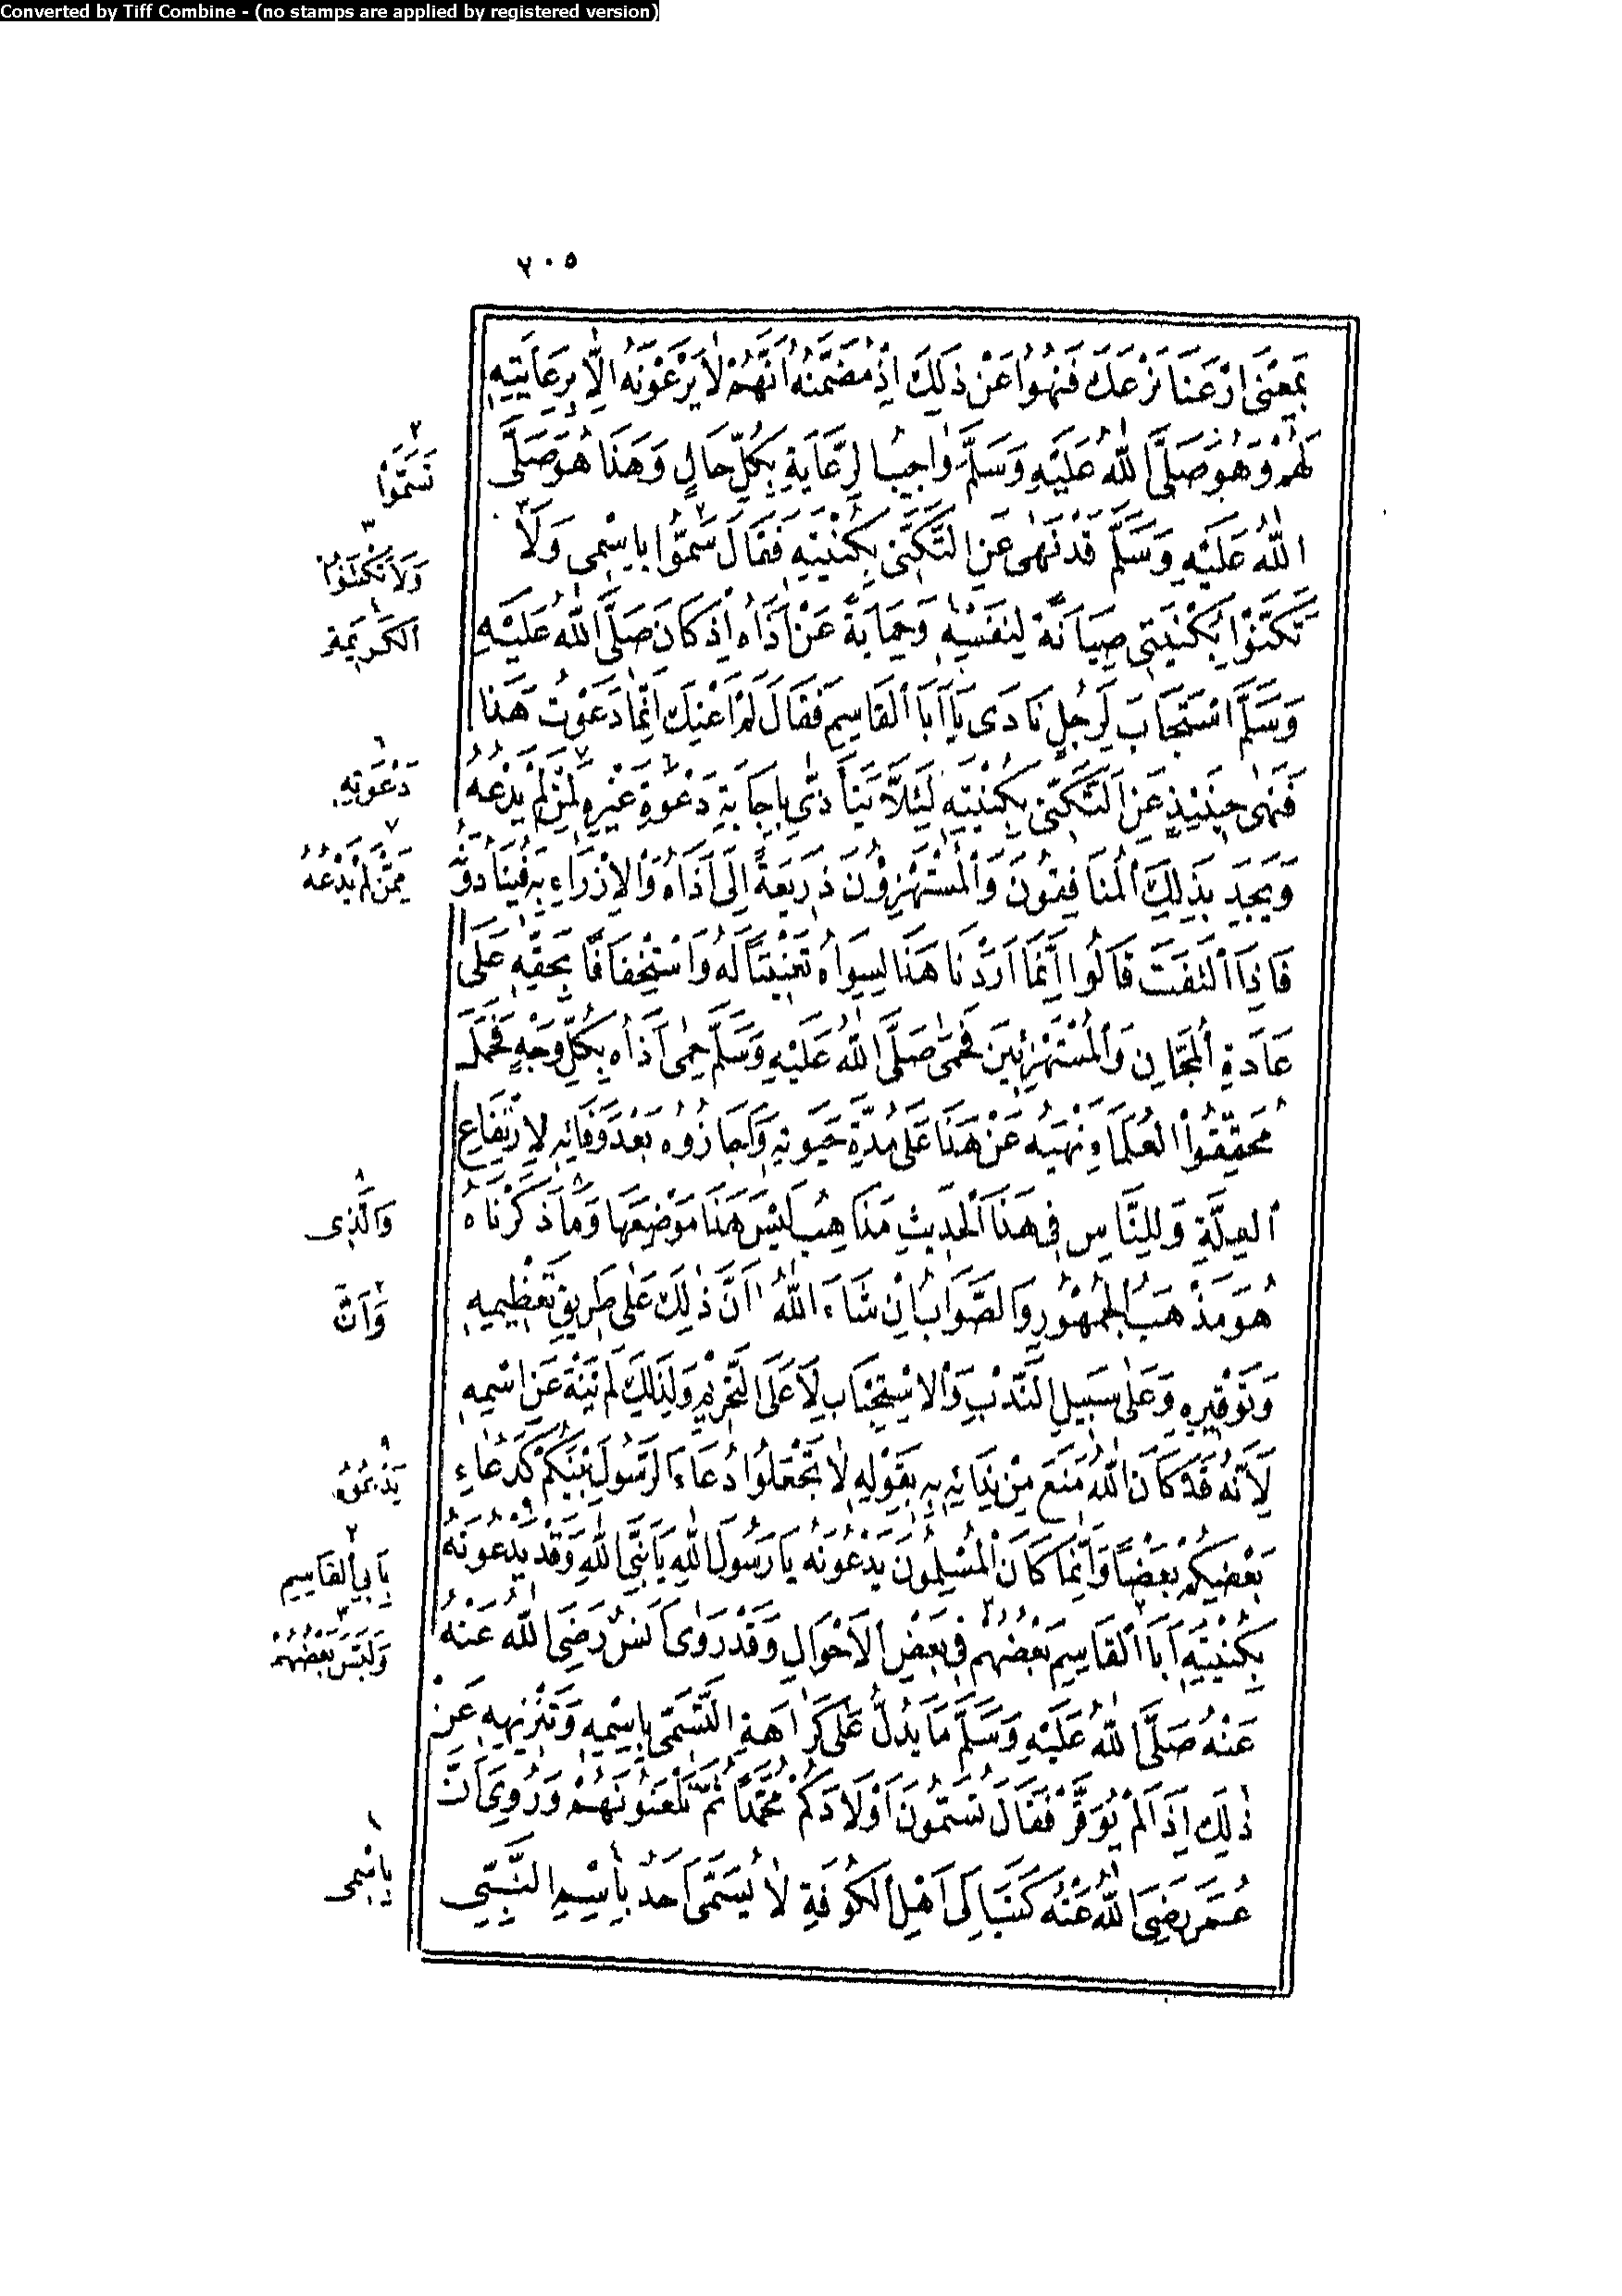 Converted by Tiff Combine - (no stamps are applied by registered version)
٢٠٥
بِمَعْنَى ارْعَنَا نَرْعَكَ فَنُهُوا عَنْ ذَلِكَ اِذْ مُضَمَّنُهُ اَنَّهُمْ لَا يَرْعَوْنَهُ اِلَّا بِرِعَايَتِهِ
لَهُمْ وَهُوَ صَلَّى اللّٰهُ عَلَيْهِ وَسَلَّمَ وَاجِبُ الرِّعَايَةِ بِكُلِّ حَالٍ وَهَذَا هُوَ صَلَّى
٢
تَسَمَّوْا
اللّٰهُ عَلَيْهِ وَسَلَّمَ قَدْ نَهٰى عَنِ التَّكَنِّى بِكُنْيَتِهِ فَقَالَ سَمُّوا بِاسْمِى وَلَا
٣
وَلَا تَكْتَنُوا
تَكَنَّوْا بِكُنْيَتِى صِيَانَةً لِنَفْسِهِ وَحِمَايَةً عَنْ اَذَاهُ اِذْ كَانَ صَلَّى اللّٰهُ عَلَيْهِ
الْكَرِيمَةِ
وَسَلَّمَ اسْتَجَابَ لِرَجُلٍ نَادَى يَا اَبَا الْقَاسِمِ فَقَالَ لَمْ اَعْنِكَ اِنَّمَا دَعَوْتُ هَذَا
فَنَهٰى حِينَئِذٍ عَنِ التَّكَنِّى بِكُنْيَتِهِ لِئَلَّا يَتَأَذَّى بِاِجَابَةِ دَعْوَةِ غَيْرِهِ لِمَنْ لَمْ يَدْعُهُ
٦
دَعْوَتِهِ
وَيَجِدَ بِذَلِكَ الْمُنَافِقُونَ وَالْمُسْتَهْزِؤُنَ ذَرِيعَةً اِلَى اَذَاهُ وَالْاِزْرَاءِ بِهِ فَيُنَادُونَهُ
٧
مِمَّنْ لَمْ يَدْعُهُ
فَاِذَا الْتَفَتَ قَالُوا اِنَّمَا اَرَدْنَا هَذَا لِسِوَاهُ تَعْنِيتًا لَهُ وَاسْتِخْفَافًا بِحَقِّهِ عَلَى
عَادَةِ الْمُجَّانِ وَالْمُسْتَهْزِئِينَ فَحَمٰى صَلَّى اللّٰهُ عَلَيْهِ وَسَلَّمَ حِمٰى اَذَاهُ بِكُلِّ وَجْهٍ فَحَمَلَ
مُحَقِّقُوا الْعُلَمَاءِ نَهْيَهُ عَنْ هَذَا عَلَى مُدَّةِ حَيٰوتِهِ وَاَجَازُوهُ بَعْدَ وَفَاتِهِ لِارْتِفَاعِ
الْعِلَّةِ وَلِلنَّاسِ فِى هَذَا الْحَدِيثِ مَذَاهِبُ لَيْسَ هَذَا مَوْضِعَهَا وَمَا ذَكَرْنَاهُ
٨
وَالَّذِى
هُوَ مَذْهَبُ الْجُمْهُورِ وَالصَّوَابُ اِنْ شَاءَ اللّٰهُ اَنَّ ذٰلِكَ عَلٰى طَرِيقِ تَعْظِيمِهِ
وَاَنَّ
وَتَوْقِيرِهِ وَعَلٰى سَبِيلِ النَّدْبِ وَالْاِسْتِحْبَابِ لَا عَلَى التَّحْرِيمِ وَلِذَلِكَ لَمْ يَنْهَ عَنِ اسْمِهِ
لِاَنَّهُ قَدْ كَانَ اللّٰهُ مَنَعَ مِنْ نِدَائِهِ بِهِ بِقَوْلِهِ لَا تَجْعَلُوا دُعَاءَ الرَّسُولِ بَيْنَكُمْ كَدُعَاءِ
٩
بَعْضِكُمْ بَعْضًا وَاِنَّمَا كَانَ الْمُسْلِمُونَ يَدْعُونَهُ يَا رَسُولَ اللّٰهِ يَا نَبِىَّ اللّٰهِ وَقَدْ يَدْعُونَهُ
٢
بِاَبِى الْقَاسِمِ
بِكُنْيَتِهِ اَبَا الْقَاسِمِ بَعْضُهُمْ فِى بَعْضِ الْاَحْوَالِ وَقَدْ رَوَى اَنَسٌ رَضِىَ اللّٰهُ عَنْهُ
٣
عَنْهُ صَلَّى اللّٰهُ عَلَيْهِ وَسَلَّمَ مَا يَدُلُّ عَلَى كَرَاهَةِ التَّسَمِّى بِاسْمِهِ وَتَنْزِيهِهِ عَنْ
ذٰلِكَ اِذَا لَمْ يُوَقَّرْ فَقَالَ تُسَمُّونَ اَوْلَادَكُمْ مُحَمَّدًا ثُمَّ تَلْعَنُونَهُمْ وَرُوِىَ اَنَّ
عُمَرَ رَضِىَ اللّٰهُ عَنْهُ كَتَبَ اِلَى اَهْلِ الْكُوفَةِ لَا يُسَمَّى اَحَدٌ بِاسْمِ النَّبِىِّ
١
بِاسْمِى